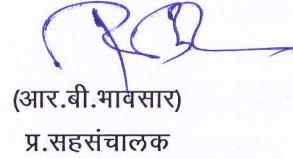 (आर.बी.भावसार)
प्र.सहसंचालक